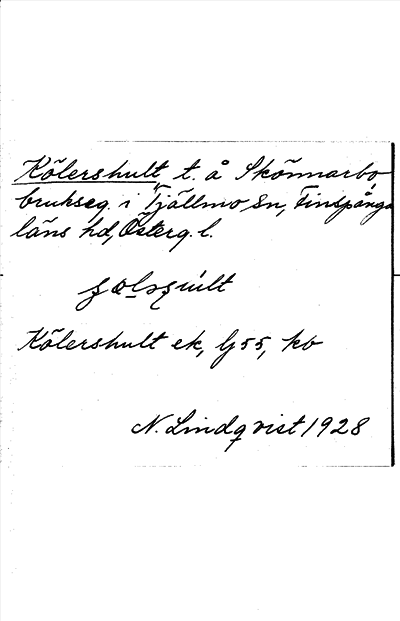 Kölershult t. å Skönnarbo
brukseg. i Tjällmo sn, Finspånga
läns hd, Österg. l.
Kölershult ek, lj 55, kb
N. Lindqvist 1928